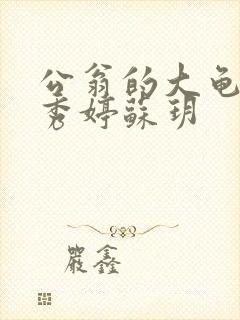 公翁的大龟
秀婷蘇玥
嚴鑫